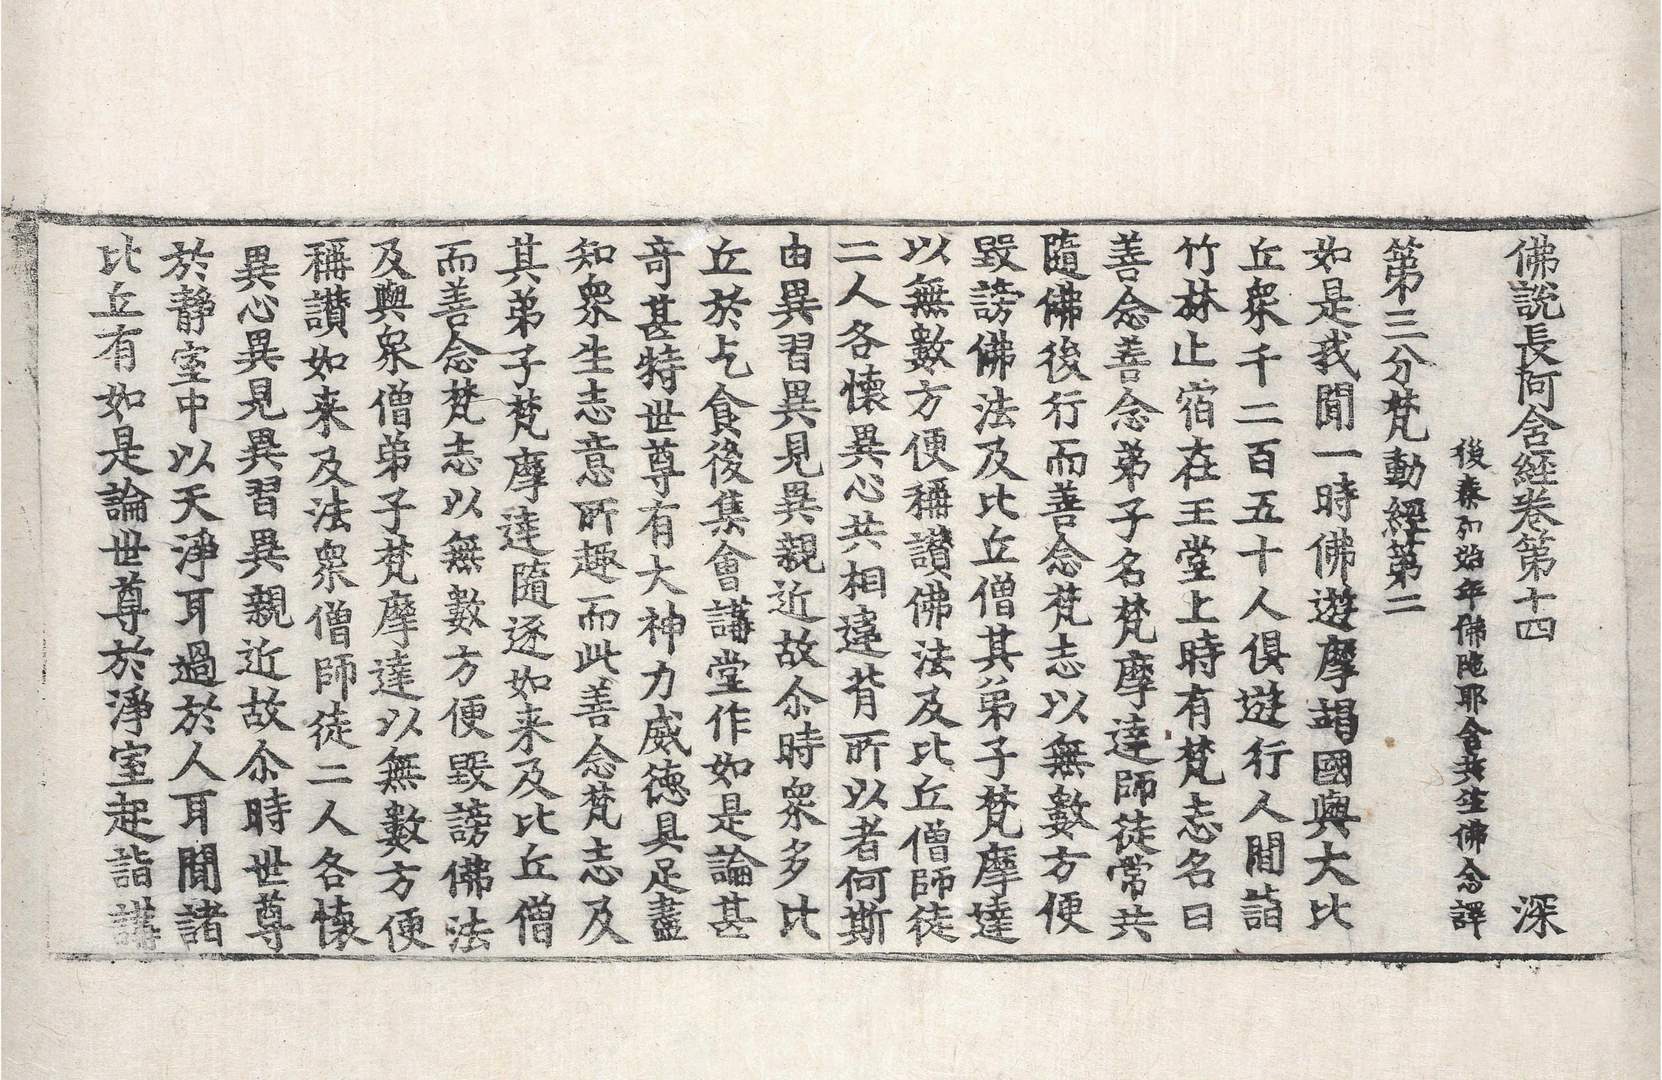 佛說長阿含經卷第十四 深
後秦弘始年佛陁耶舍共竺佛念譯
第三分梵動經第二
如是我聞一時佛遊摩竭國與大比
丘衆千二百五十人俱遊行人間詣
竹林止宿在王堂上時有梵志名曰
善念善念弟子名梵摩達師徒常共
隨佛後行而善念梵志以無數方便
毀謗佛法及比丘僧其弟子梵摩達
以無數方便稱讃佛法及比丘僧師徒
二人各懷異心共相違背所以者何斯
由異習異見異親近故尒時衆多比
丘於乞食後集會講堂作如是論甚
奇甚特世尊有大神力威德具足盡
知衆生志意所趣而此善念梵志及
其弟子梵摩達隨逐如来及比丘僧
而善念梵志以無數方便毀謗佛法
及與衆僧弟子梵摩達以無數方便
稱讃如来及法衆僧師徒二人各懷
異心異見異習異親近故尒時世尊
於靜室中以天淨耳過於人耳聞諸
比丘有如是論世尊於淨室起詣講